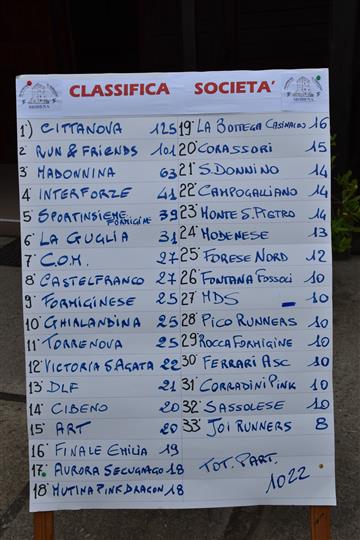 MODENA
CLASSIFICA SOCIETA'
MODENA
1°) CITTANOVA 125
2° RUN & FRIENDS 101
3° MADONNINA 63
4° INTERFORZE 41
5° SPORTINSIEME FORMIGINE 39
6° LA GUGLIA 31
7° C.O.M. 27
8° CASTELFRANCO 27
9° FORMIGINESE 25
10° GHIRLANDINA 25
11° TORRENOVA 25
12° VICTORIA S.AGATA 22
13° DLF 21
14° CIBENO 20
15° ART 20
16° FINALE EMILIA 19
17° AURORA SECUGNAGO 18
18° MUTINA PINK DRAGON 18
19° LA BOTTEGA CASINALBO 16
20° CORASSORI 15
21° S. DONNINO 14
22° CAMPOGALLIANO 14
23° MONTE S. PIETRO 14
24° MODENESE 13
25° FORESE NORD 12
26° FONTANA FOSSOCI 10
27° MDS 10
28° PICO RUNNERS 10
29° ROCCA FORMIGINE 10
30° FERRARI ASC 10
31° CORRADINI PINK 10
32° SASSOLESE 10
33° JOI RUNNERS 8
TOT. PART.
1022